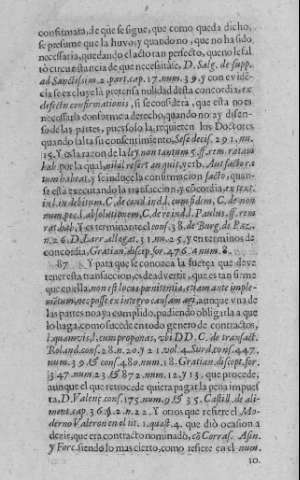 confirmada, de que se sigue, que como queda dicho,
se presume que la huvo, y quando no, que no ha sido
necessaria, quedando el acto tan perfecto, que no le fal
tò circunstancia de que necessitasse, D. Salg. de supp.
ad Sanctissim. 2. part. cap. 17. num. 39. y con evidē
cia se excluye esta pretensa nulidad desta concordia, ex
defectu confirmationis, si se considera, que esta no es
necessaria conforme a derecho, quando no ay disen-
so de las partes, pues solo la requieren los Doctores
quando falta su consentimiento, Sesè decis. 291. nu.
15. Y es la razon de la ley non tantum 5. ff. rem ratam
hab. por la qual, nihil refert an quis, vetb. Aut factor a
tum habeat, y se induce la confirmacion facto, quan-
se està executando la transaccion, y cōcordia, ex text.
in l. in debitum, C. de cond. ind. cum fidem, C. de non
num. pec. l. absolutionem, C. de rei nd. Paulus, ff. rem
rat. hab. Y es terminante el conf. 38. de Burg. de Paz,
n. 26. D. Larr. allegat. 31. nu. 25. y en terminos de
concordia, Gratian. discep. for. 476. à num. 8.
87. Y para que se conozca la fuerça que deve
tener esta transaccion, es de advertir, que es tan firme
que en ella, non est locus pœnitentia, etiam ante imple-
mētum, nec posse ex integro causam agi, aunque vna de
las partes no aya cumplido, pudiendo obligarla a que
lo haga, como sucede en todo genero de contractos,
l. quamvis, l. cum proponas, vbi DD. C. de transact.
Roland. cons. 28. n. 20. y 21. vol. 4. Surd. cons. 447.
num. 39. & cons. 480. num. 18. Gratian. discept. for.
347. num. 23. & 872. num. 12. y 13. que procede,
aunque el que retrocede quiera pagar la pena impues
ta, D. Valenç. cons. 175. num. 9. & 35. Castill. de ali-
ment. cap. 36. §. 2. n. 22. Y otros que refiere el Mo-
derno Valeron en el tit. 1. quæst. 4. que diò ocasion a
dezir, que era contracto nominado, cō Corras. Asin.
y Forc. siendo lo mas cierto, como refiere en el num.
10.